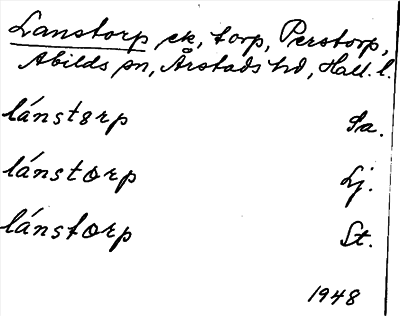 Lanstorp ek, torp, Perstorp,
Abilds sn, Årstads hd, Hall. l.
lánstɵrp Sa.
lánstɵrp Lj.
lánstɵrp St.
1948